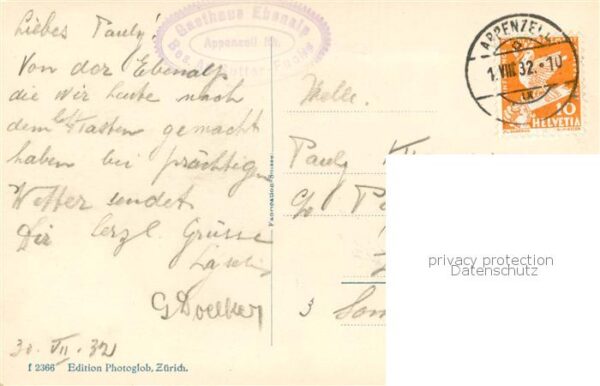 Liebes Pauly!
Von der Ebenalp
die wir heute nach
dem Kasten gemacht
haben bei prächtigem
Wetter sendet
Dir herzl. Grüsse
G Doelker
30. VII. 32
f 2366 Edition Photoglob, Zürich.
Gasthaus Ebenalp
Appenzell
Bes.
Fabrication Suisse
Mlle.
Pauly
c/o
3
APPENZELL
1.VIII.32.-10
10
HELVETIA
privacy protection
Datenschutz